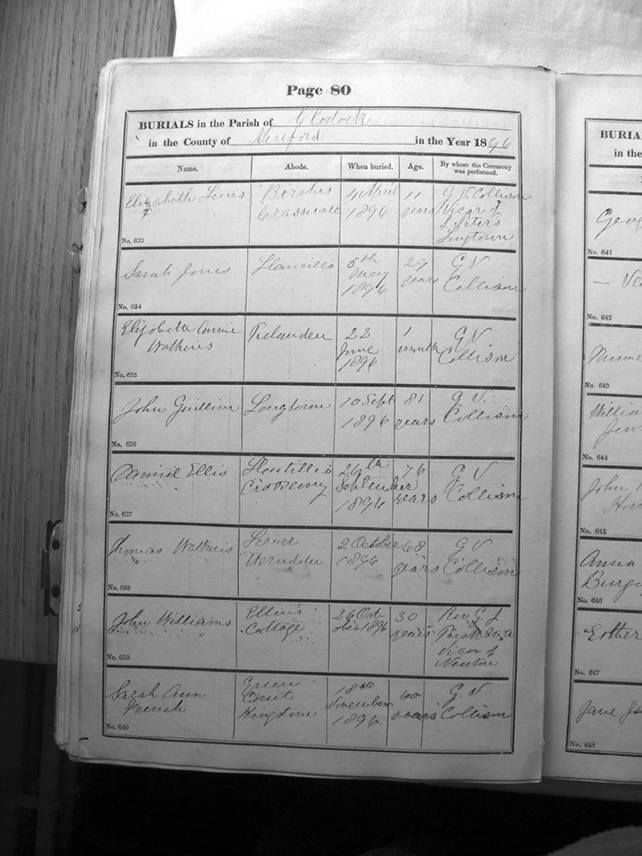 Page 80
BURIALS in the Parish of Clodock
in the County of Hereford in the Year 1896
Name. Abode. When buried. Age. By whom the Ceremony was performed.
Elizabeth Lewis
Craswall
4 April
1896
11
years
G. V. Collison
Vicar of
S. Peter's
Longtown
No. 633
Sarah Jones
Llancillo
5th
May
1896
29
years
G V
Collison
No. 634
Elizabeth Annie
Watkins
Trelandon
22
June
1896
1
month
G V
Collison
No. 635
John Gwillim
Longtown
10 Sept
1896
81
years
G. V.
Collison
No. 636
Daniel Ellis
Crossenny
26th
September
1896
76
years
G V
Collison
No. 637
Thomas Watkins
Lower
2 October
1896
68
years
G V
Collison
No. 638
John Williams
Cottage
26 Oct
1896
30
years
Rev G J
Vicar of
No. 639
Sarah Ann
French
Green
Court
18th
November
1896
60
years
G. V
Collison
No. 640
BURIA
in the
No. 641
No. 642
No. 643
Willia
No. 644
John
No. 645
Anna
No. 646
Esther
No. 647
Jane
No. 648